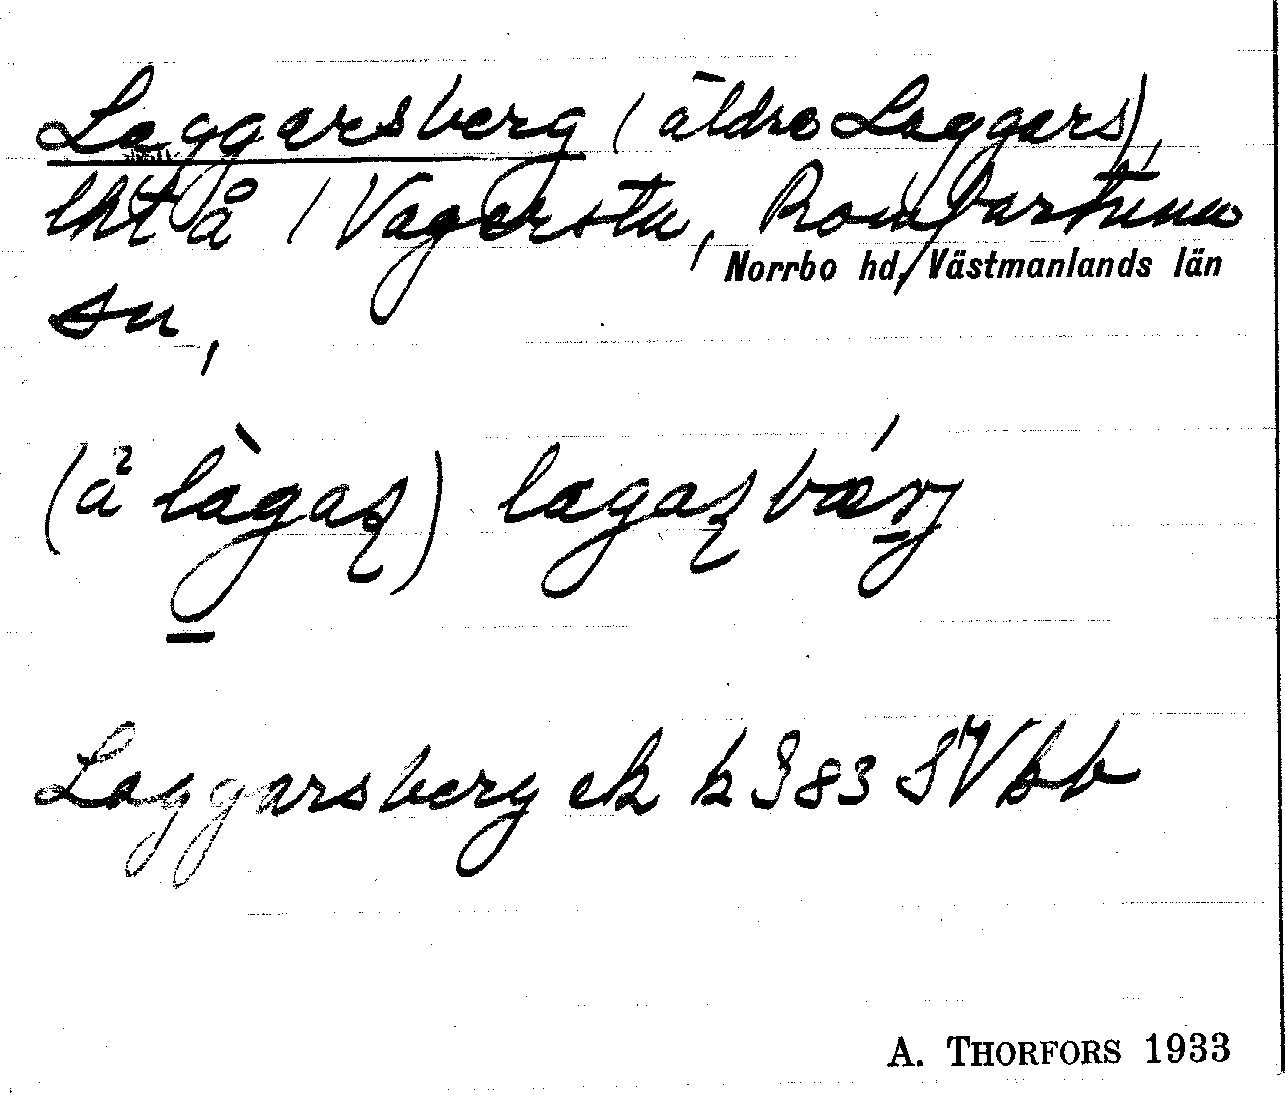 Laggarsberg (äldre Laggars),
lht å 1 Vagersta, Romfartuna
Norrbo hd, Västmanlands län
sn,
(å làgaʂ) lagaʂbærj
Laggarsberg ek k 383 SV bb
A. THORFORS 1933